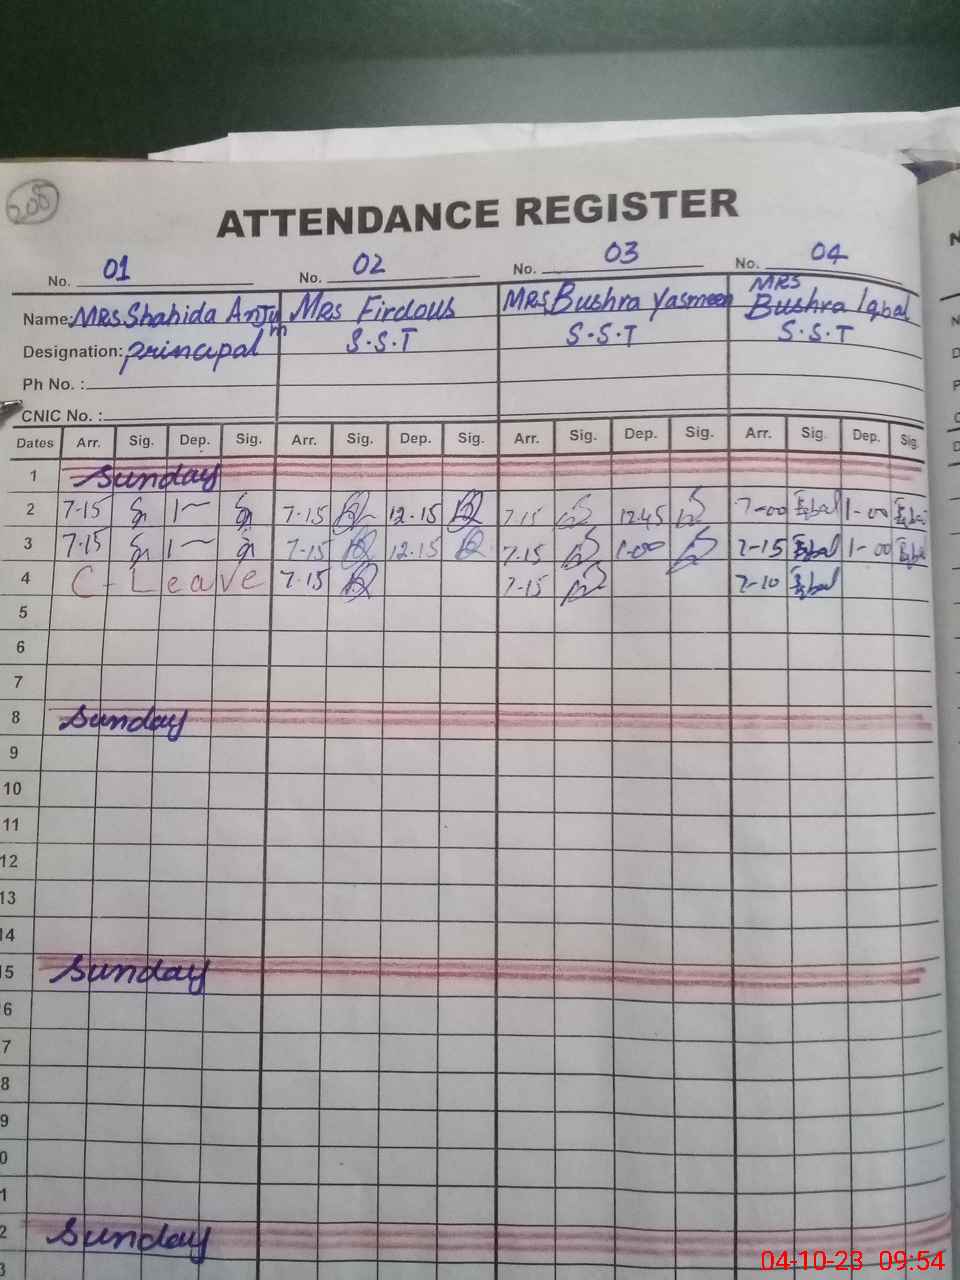 208
ATTENDANCE REGISTER
No. 01 No. 02 No. 03 No. 04
Name: MRS. Shahida Anjum Mrs Firdous MRS Bushra Yasmeen MRS Bushra Iqbal
Designation: principal S.S.T S.S.T S.S.T
Ph No. :
CNIC No. :
Dates Arr. Sig. Dep. Sig. Arr. Sig. Dep. Sig. Arr. Sig. Dep. Sig. Arr. Sig. Dep. Sig.
1 Sunday
2 7-15 1— 7-15 12.15 7-15 12.45 7-00 Iqbal 1-00 Iqbal
3 7-15 1— 7-15 12.15 7-15 1-00 7-15 Iqbal 1-00 Iqbal
4 C-Leave 7-15 7-15 7-10 Iqbal
5
6
7
8 Sunday
9
10
11
12
13
14
15 Sunday
6
7
8
9
0
1
2 Sunday
3
04-10-23 09:54